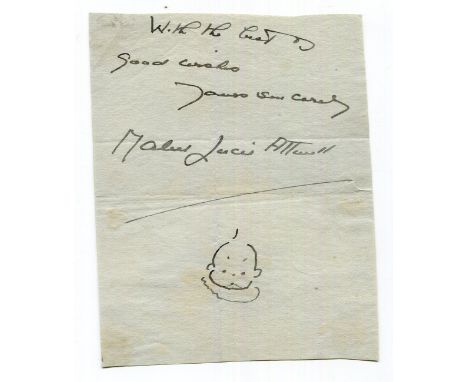 With the best of
good wishes
Yours sincerely
Mabel Lucie Attwell